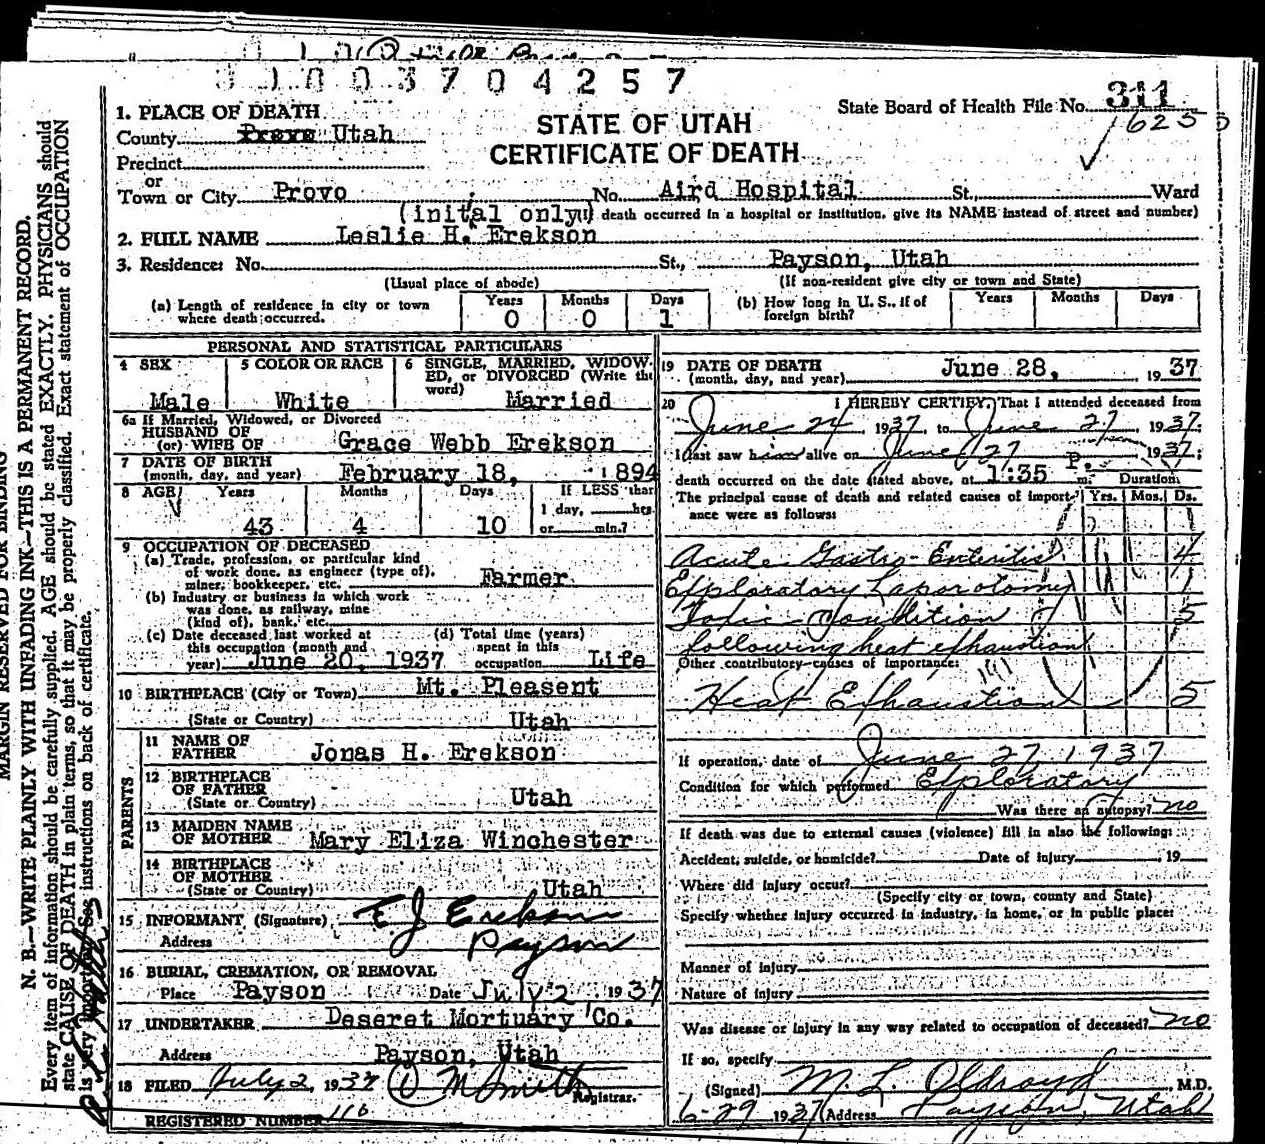 3 7 0 4 2 5 7
State Board of Health File No. 311
1625
STATE OF UTAH
CERTIFICATE OF DEATH
1. PLACE OF DEATH
County Provo Utah
Precinct
or
Town or City Provo No. Aird Hospital St., Ward
(inital only) death occurred in a hospital or institution, give its NAME instead of street and number)
2. FULL NAME Leslie H. Erekson
3. Residence: No. St., Payson, Utah
(Usual place of abode) (If non-resident give city or town and State)
(a) Length of residence in city or town where death occurred. Years 0 Months 0 Days 1
(b) How long in U. S., if of foreign birth? Years Months Days
PERSONAL AND STATISTICAL PARTICULARS
4 SEX Male
5 COLOR OR RACE White
6 SINGLE, MARRIED, WIDOWED, or DIVORCED (Write the word) Married
6a If Married, Widowed, or Divorced
HUSBAND OF
(or) WIFE OF Grace Webb Erekson
7 DATE OF BIRTH
(month, day, and year) February 18, 1894
8 AGE Years 43 Months 4 Days 10 If LESS than 1 day, hrs. or min.?
9 OCCUPATION OF DECEASED
(a) Trade, profession, or particular kind
of work done, as engineer (type of),
miner, bookkeeper, etc. Farmer
(b) Industry or business in which work
was done, as railway, mine
(kind of), bank, etc.
(c) Date deceased last worked at
this occupation (month and
year) June 20, 1937
(d) Total time (years)
spent in this
occupation Life
10 BIRTHPLACE (City or Town) Mt. Pleasent
(State or Country) Utah
PARENTS
11 NAME OF
FATHER Jonas H. Erekson
12 BIRTHPLACE
OF FATHER
(State or Country) Utah
13 MAIDEN NAME
OF MOTHER Mary Eliza Winchester
14 BIRTHPLACE
OF MOTHER
(State or Country) Utah
15 INFORMANT (Signature) E J Erekson
Address Payson
16 BURIAL, CREMATION, OR REMOVAL
Place Payson Date July 2 1937
17 UNDERTAKER Deseret Mortuary Co.
Address Payson, Utah
18 FILED July 2, 1937 M Smith Registrar.
REGISTERED NUMBER 116
19 DATE OF DEATH
(month, day, and year) June 28, 1937
20 I HEREBY CERTIFY, That I attended deceased from
June 24 1937, to June 27 1937.
I last saw him alive on June 27 1937;
death occurred on the date stated above, at 1:35 P. m. Duration
The principal cause of death and related causes of importance were as follows: Yrs. Mos. Ds.
Acute Gastro-Enteritis 4
Exploratory Laporotomy 1
Toxic Condition 5
following heat exhaustion
Other contributory causes of importance:
Heat Exhaustion 5
If operation, date of June 27, 1937
Condition for which performed Exploratory
Was there an autopsy? no
If death was due to external causes (violence) fill in also the following:
Accident, suicide, or homicide? Date of injury 19
Where did injury occur?
(Specify city or town, county and State)
Specify whether injury occurred in industry, in home, or in public place:
Manner of injury
Nature of injury
Was disease or injury in any way related to occupation of deceased? no
If so, specify
(Signed) M. L. Oldroyd, M.D.
6-29 1937 (Address Payson, Utah
MARGIN RESERVED FOR BINDING
N. B.—WRITE PLAINLY WITH UNFADING INK—THIS IS A PERMANENT RECORD.
Every item of information should be carefully supplied. AGE should be stated EXACTLY. PHYSICIANS should
state CAUSE OF DEATH in plain terms, so that it may be properly classified. Exact statement of OCCUPATION
is very important. See instructions on back of certificate.